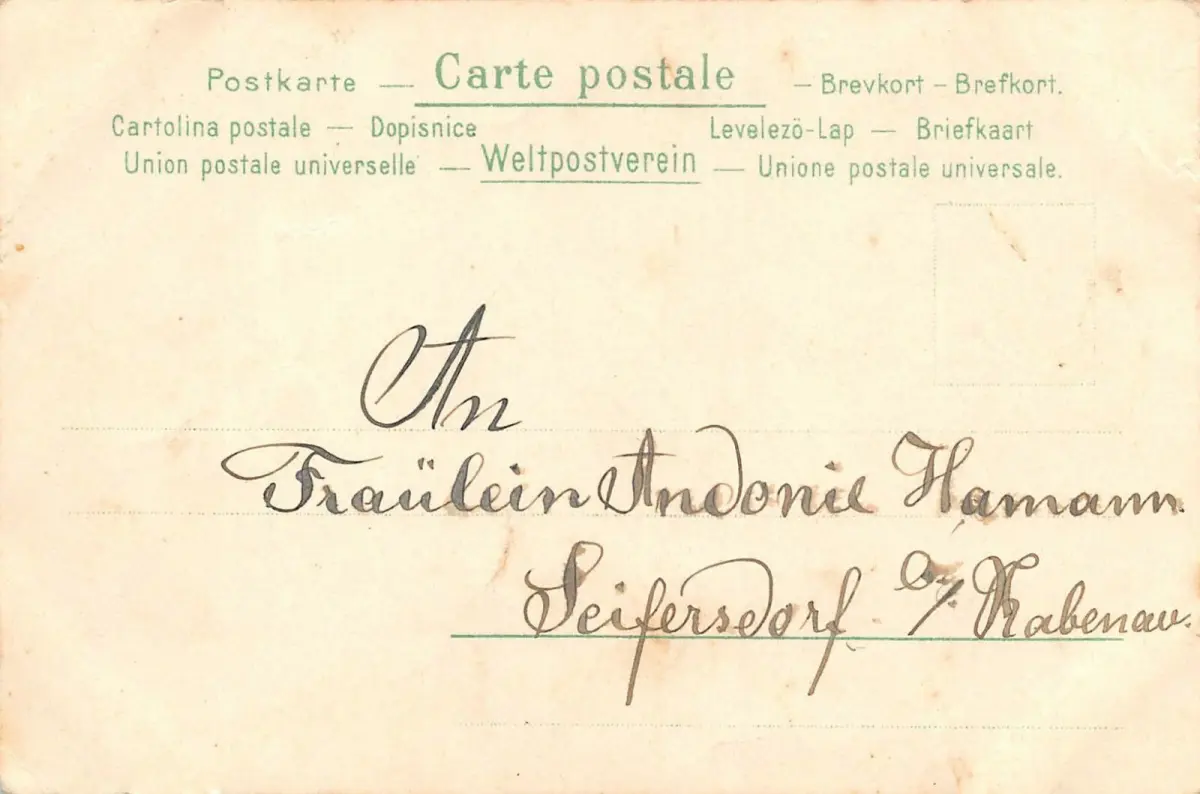 Postkarte — Carte postale — Brevkort – Brefkort.
Cartolina postale — Dopisnice Levelezö-Lap — Briefkaart
Union postale universelle — Weltpostverein — Unione postale universale.
An
Fräulein Andonie Hamann.
Seifersdorf b/. Rabenau.